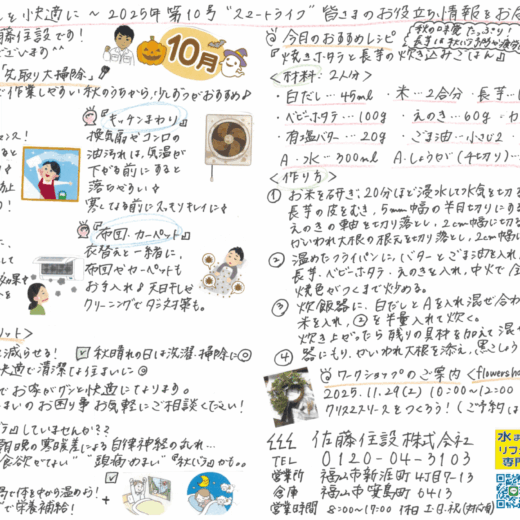 と快適に〜2025年第10号 "スマートライフ" 皆さまのお役立ち情報をお
藤住設です!
ございます^^
10月
『先取り大掃除』
で作業しやすい秋のうちから、少しずつがおすすめ♪
『キッチンまわり』
換気扇やコンロの
油汚れは、気温が
下がる前にすると
落ちやすい♪
寒くなる前にスッキリキレイに♪
『布団・カーペット』
衣替えと一緒に、
布団やカーペットも
お手入れ♪天日干しや
クリーニングでダニ対策も。
リット>
減らせる!
☑秋晴れの日は洗濯・掃除に◎
快適で清潔な住まいに◎
でお家がグンと快適になります。
まいのお困り事お気軽にご相談ください!
していませんか??
朝晩の寒暖差による自律神経のみだれ…
食欲がでない" "頭痛・めまい" 『秋バテ』かも。。
で体を中から温める!
で栄養補給!
◎今日のおすすめレシピ
秋の味覚たっぷり!
『焼きホタテと長芋の炊き込みごはん』
<材料:2人分>
・白だし…45ml ・米…2合分 ・長芋…
・ベビーホタテ…100g ・えのき…60g ・か
・有塩バター…20g ・ごま油…小さじ2
A.水…300ml A.しょうが(千切り)…
<作り方>
① お米を研ぎ、20分ほど浸水して水気を切る
長芋の皮をむき、5mm幅の半月切りにする
えのきの軸を切り落とし、2cm幅に切る
かいわれ大根の根元を切り落とし、2cm幅に
② 温めたフライパンに、バターとごま油を入れ
長芋、ベビーホタテ、えのきを入れ、中火で
焼色がつくまで炒める。
③ 炊飯器に、白だしとAを入れ混ぜ合わ
米を入れ、②を半量入れて炊く。
炊き上がったら残りの具材を加えて混ぜ
④ 器にもり、かいわれ大根を添え、黒こしょう
◎ワークショップのご案内<flowersho
2025.11.29(土) 10:00〜12:00
クリスマスリースをつくろう!(ご予約は
佐藤住設株式会社
TEL 0120-04-3103
営業所 福山市新涯町4丁目7-13
倉庫 福山市箕島町6413
営業時間 8:00〜17:00 休日 土・日・祝
水ま
リフ
専門